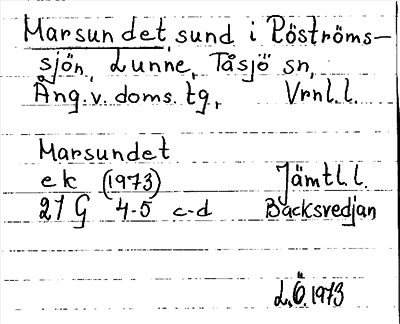 Marsundet, sund i Röströms-
sjön, Lunne, Tåsjö sn,
Ång. v. doms. tg, Vrnl.l.
Marsundet
ek (1973) Jämtl.l.
21 G 4-5 c-d Backsvedjan
L.Ö. 1973